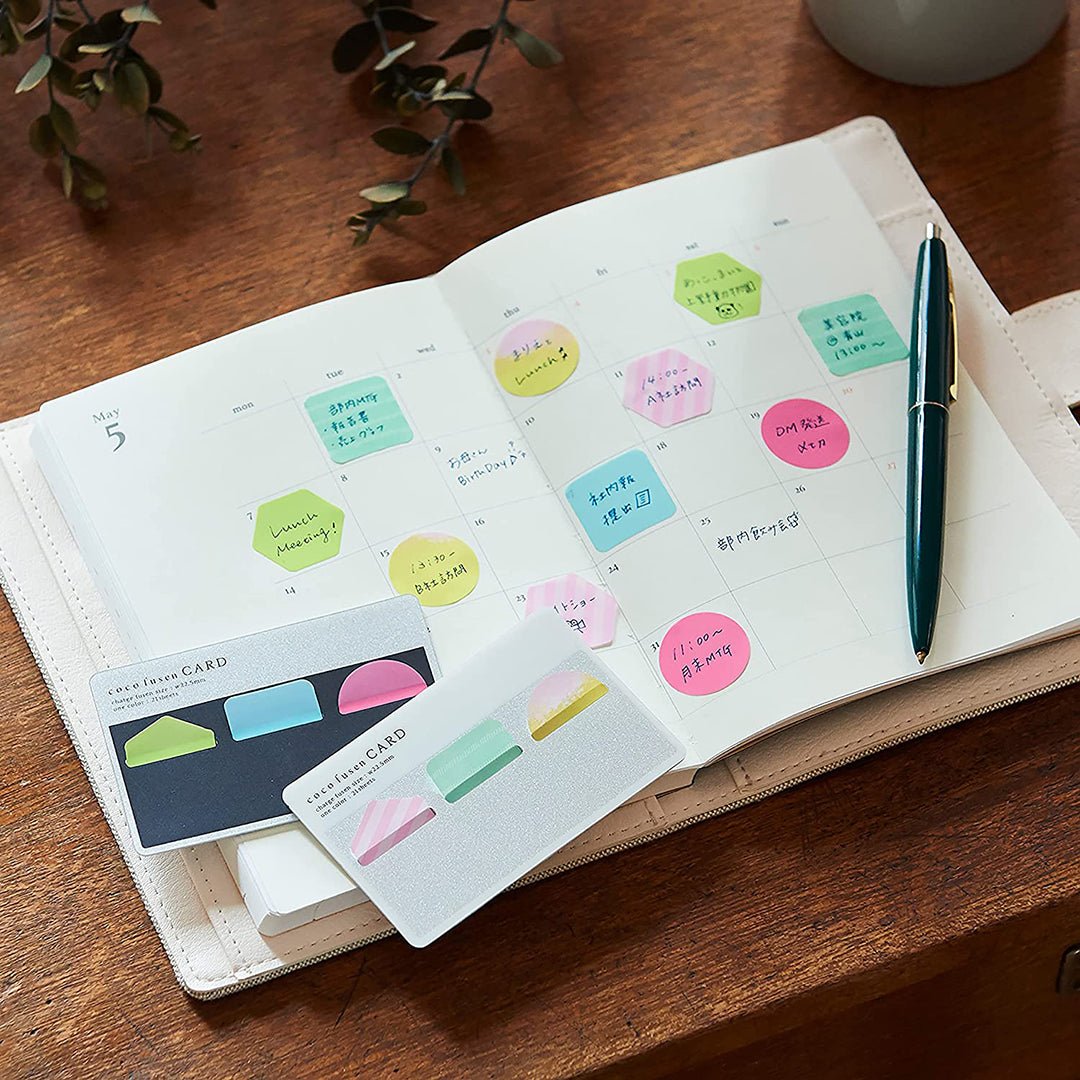 May
5
mon
tue
wed
thu
fri
sat
sun
部内MTG
・報告書
・売上グラフ
2
まりえと
Lunch♪
あっこ、まいと
上野動物園
美容院
@青山
13:00〜
7
Lunch
Meeting!
8
9
お母さん
BirthDay
10
11
14:00-
A社訪問
12
14
15
13:30-
B社訪問
16
社内報
提出
18
19
DM発送
〆切
20
23
イトショー
24
25
部内飲み会
26
31
11:00〜
月末MTG
coco fusen CARD
charge fusen size : w22.5mm
one color : 21sheets
coco fusen CARD
charge fusen size : w22.5mm
one color : 21sheets